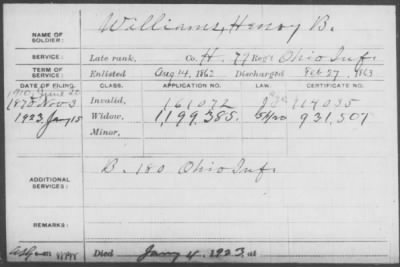 NAME OF SOLDIER: Williams, Henry B.
SERVICE: Late rank, Co. H. 79 Reg't Ohio Inf.
TERM OF SERVICE: Enlisted Aug 14, 1862 Discharged Feb 27, 1863
DATE OF FILING. CLASS. APPLICATION NO. LAW. CERTIFICATE NO.
1870 Nov 3 Invalid, 161072
1923 Jany 15 Widow, 1199.385. 931.507
Minor,
ADDITIONAL SERVICES: B. 180 Ohio Inf.
REMARKS:
Died Jany 4, 1923, at